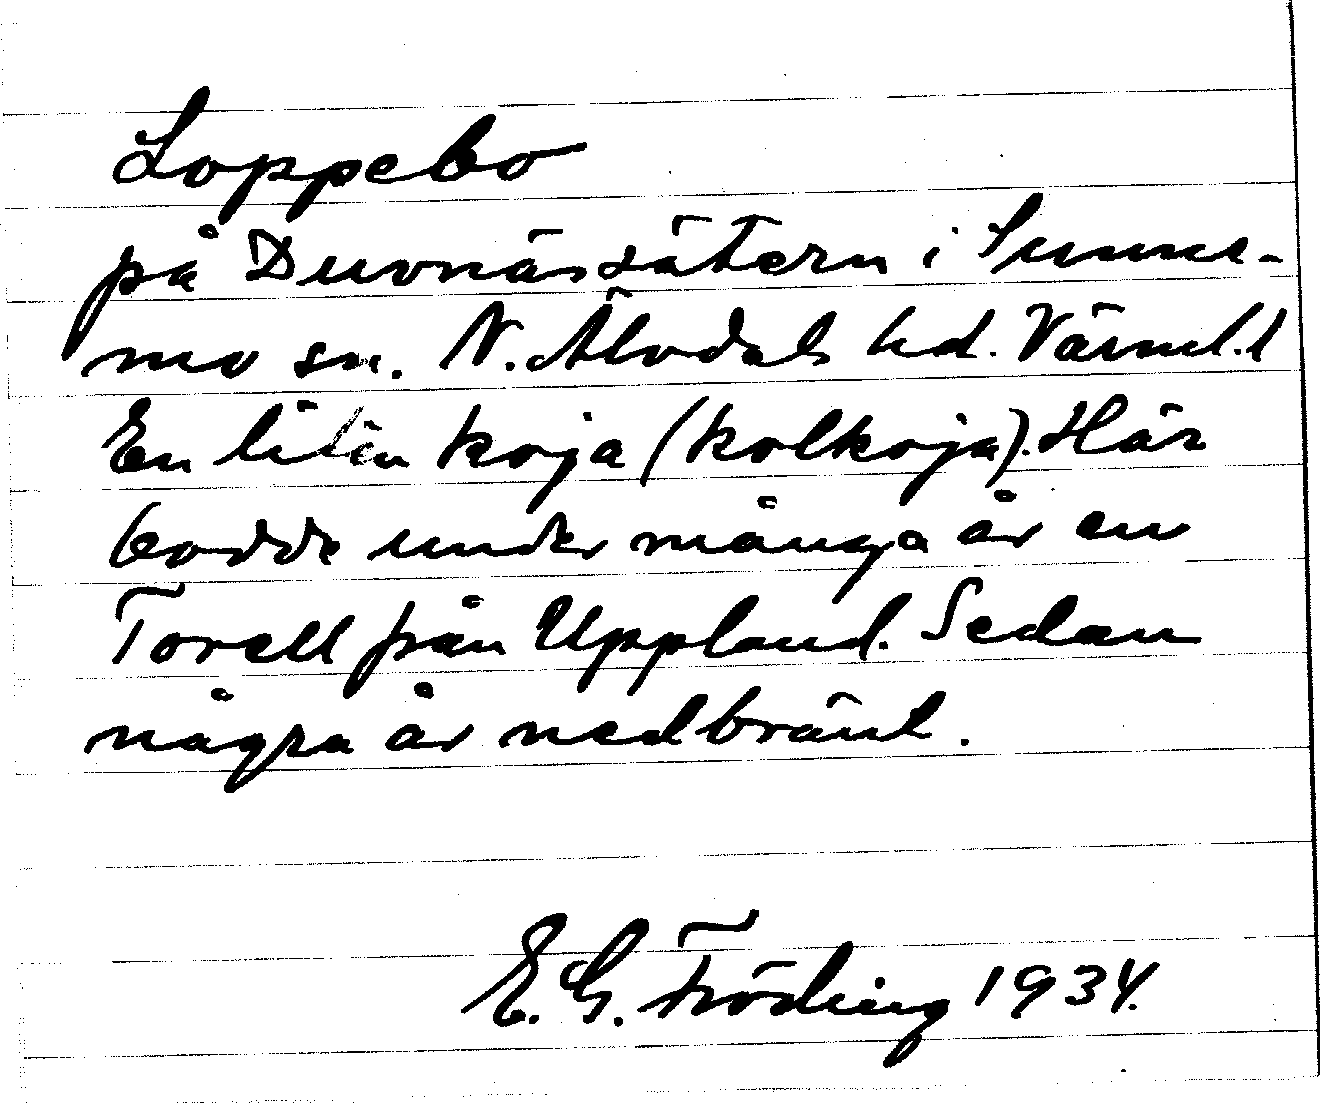 Loppebo
på Duvnässätern i Sunne-
mo sn. N. Älvdals hd. Värml.
En liten koja (kolkoja). Här
bodde under många år en
Torell från Uppland. Sedan
några år nedbränt.
E. G. Fröding 1934.